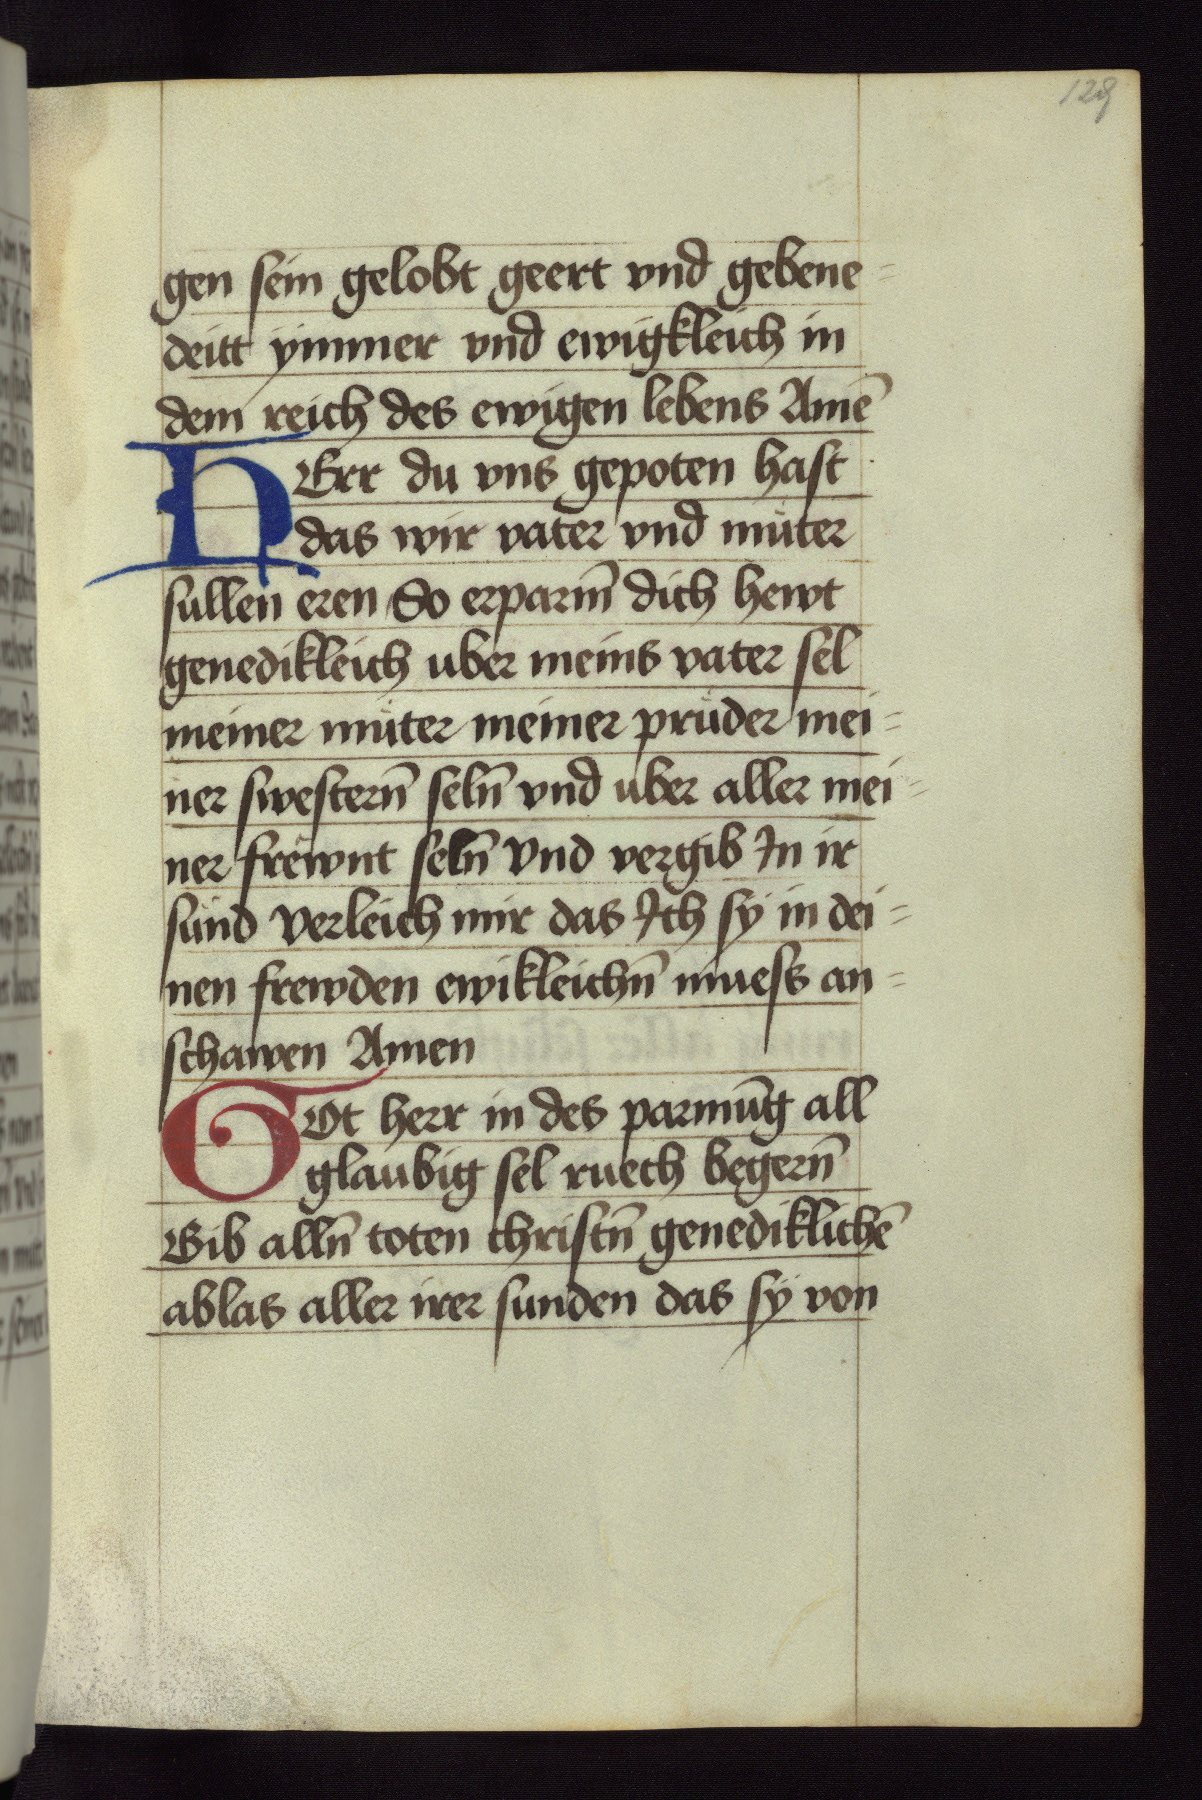 129
gen sein gelobt geert vnd gebene=
deitt ymmer vnd ewigkleich in
dem reich des ewigen lebens Amē
HErr du vns gepoten hast
das wir vater vnd mu̇ter
sullen eren So erparm̄ dich hewt
genedikleich uber meins vater sel
meiner mu̇ter meiner pru̇der mei=
ner swestern̄ seln̄ vnd u̇ber aller mei=
ner frewnt seln̄ Vnd vergib In ir
su̇nd Verleich mir das Ich sÿ in dei=
nen frewden ewikleichn̄ muess an=
schawen Amen
GOt herr in des parmūg all
glaubig sel ruech begern̄
Gib alln̄ toten christn̄ genediklichē
ablas aller irer sunden das sÿ von